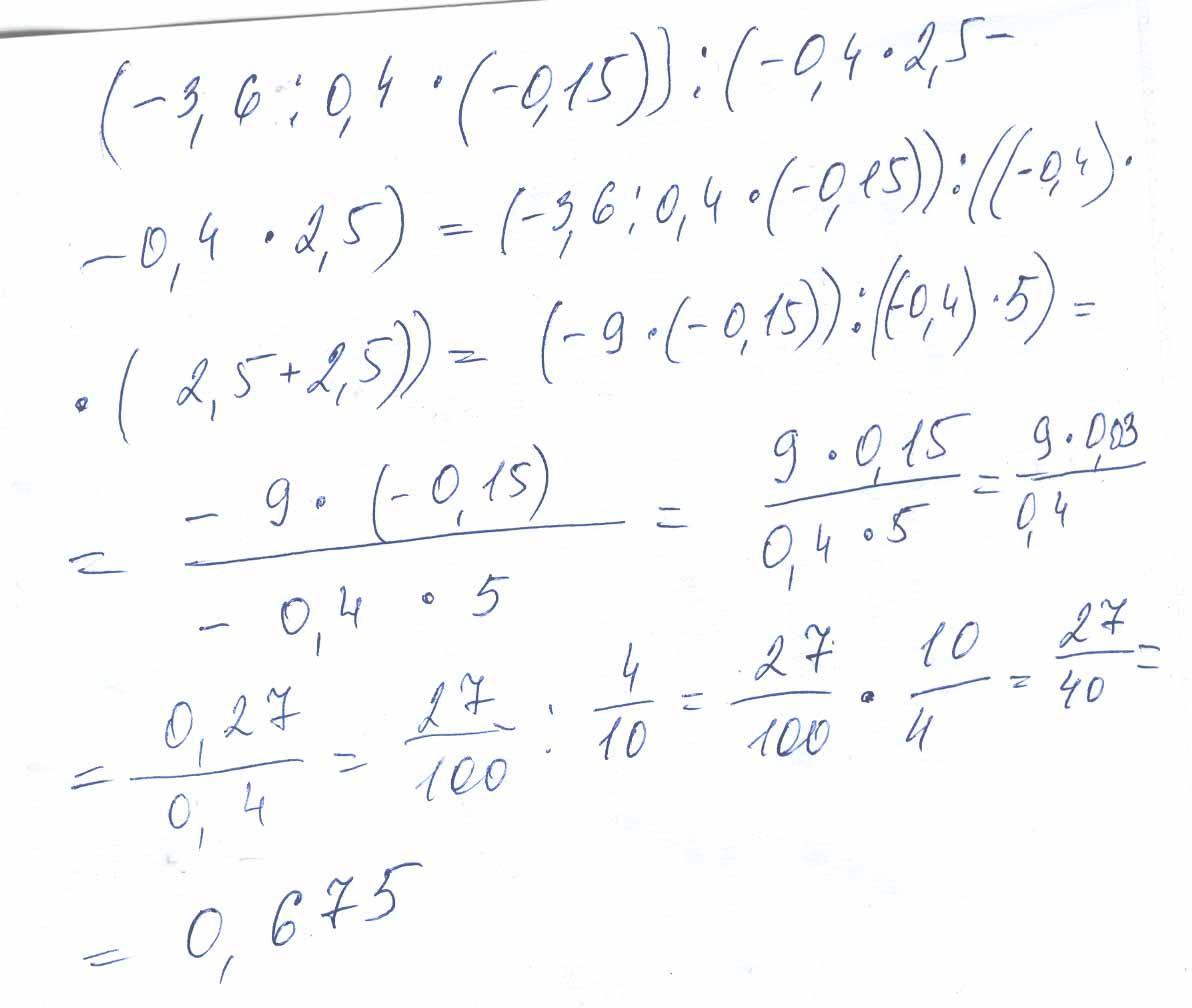 (-3,6 : 0,4 · (-0,15)) : (-0,4 · 2,5 -
- 0,4 · 2,5) = (-3,6 : 0,4 · (-0,15)) : ((-0,4) ·
· ( 2,5 + 2,5)) = (-9 · (-0,15)) : ((-0,4) · 5) =
= \frac{- 9 · (-0,15)}{- 0,4 · 5} = \frac{9 · 0,15}{0,4 · 5} = \frac{9 · 0,03}{0,4}
= \frac{0,27}{0,4} = \frac{27}{100} : \frac{4}{10} = \frac{27}{100} · \frac{10}{4} = \frac{27}{40} =
= 0,675